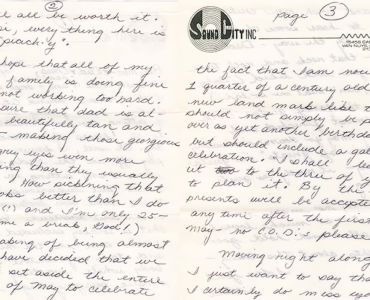 ②
all be worth it.
, everything here is
"peachy".
hope that all of my
family is doing fine
not working too hard.
sure that dad is al-
beautifully tan and
- making those gorgeous
grey eyes even more
than they usually
How sickening that
looks better than I do
(!) and I'm only 25-
me a break, God!)
of being almost
have decided that we
set aside the entire
of May to celebrate
SOUND CITY INC
page ③
15456 CA
VAN NUYS,
the fact that I am now
1 quarter of a century old
new land mark like t
should not simply be p
over as yet another birthda
but should include a gal
celebration. I shall le
it to the three of y
to plan it. By the
presents will be accepte
any time after the firs
may - no C.O.D.'s please
Moving right along
I just want to say tha
I certainly do miss yo